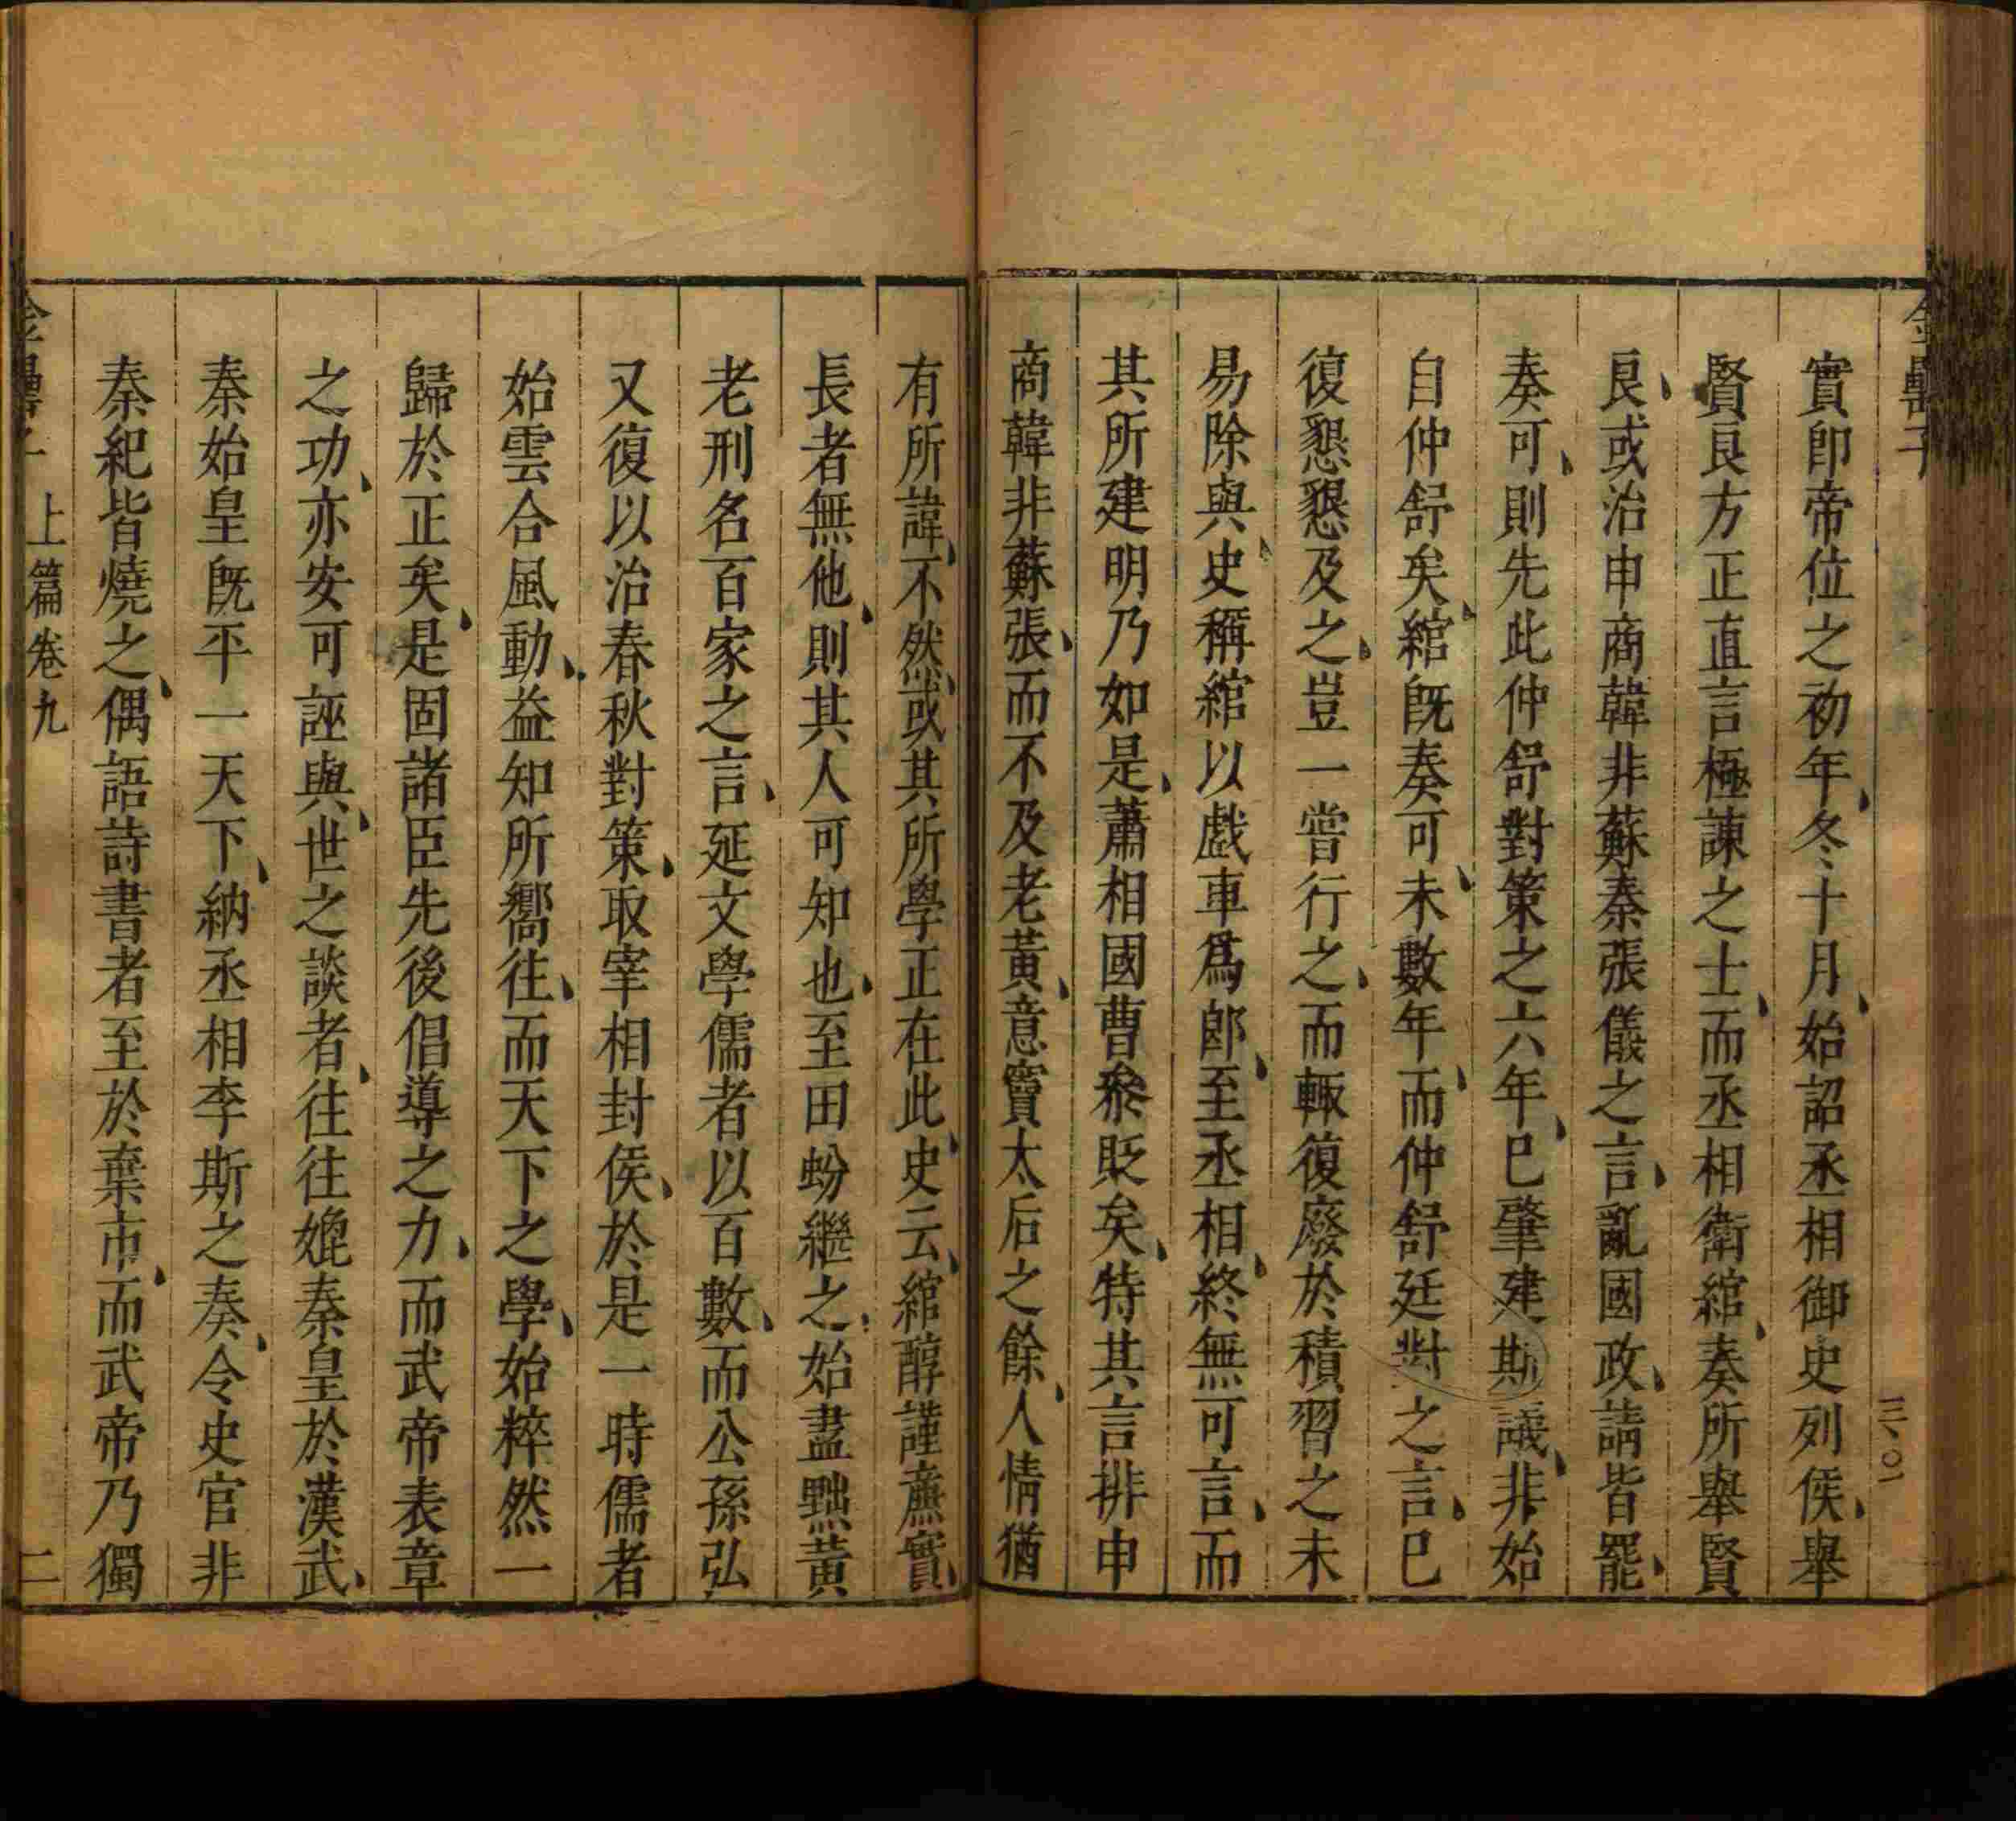 金罍子
三〇
實即帝位之初年、冬十月、始詔丞相御史列侯、舉
賢良方正直言極諫之士、而丞相衛綰、奏所舉賢
良、或治申商韓非蘇秦張儀之言、亂國政、請皆罷、
奏可、則先此仲舒對策之六年、巳肇建斯議、非始
自仲舒矣、綰旣奏可、未數年、而仲舒廷對之言、巳
復懇懇及之、豈一嘗行之、而輙復廢於積習之未
易除與、史稱綰以戱車爲郎、至丞相、終無可言、而
其所建明乃如是、蕭相國曹叅貶矣、特其言排申
商韓非蘇張、而不及老黃、意竇太后之餘、人情猶
有所諱、不然、或其所學正在此、史云、綰醇謹亷實、
長者無他、則其人可知也、至田蚡繼之、始盡黜黃
老刑名百家之言、延文學儒者以百數、而公孫弘
又復以治春秋對策、取宰相封侯、於是一時儒者
始雲合風動、益知所嚮往、而天下之學、始粹然一
歸於正矣、是固諸臣先後倡導之力、而武帝表章
之功、亦安可誣與、世之談者、往往媲秦皇於漢武、
秦始皇旣平一天下、納丞相李斯之奏、令史官非
秦紀皆燒之、偶語詩書者至於棄市、而武帝乃獨
金罍子 上篇卷九 二